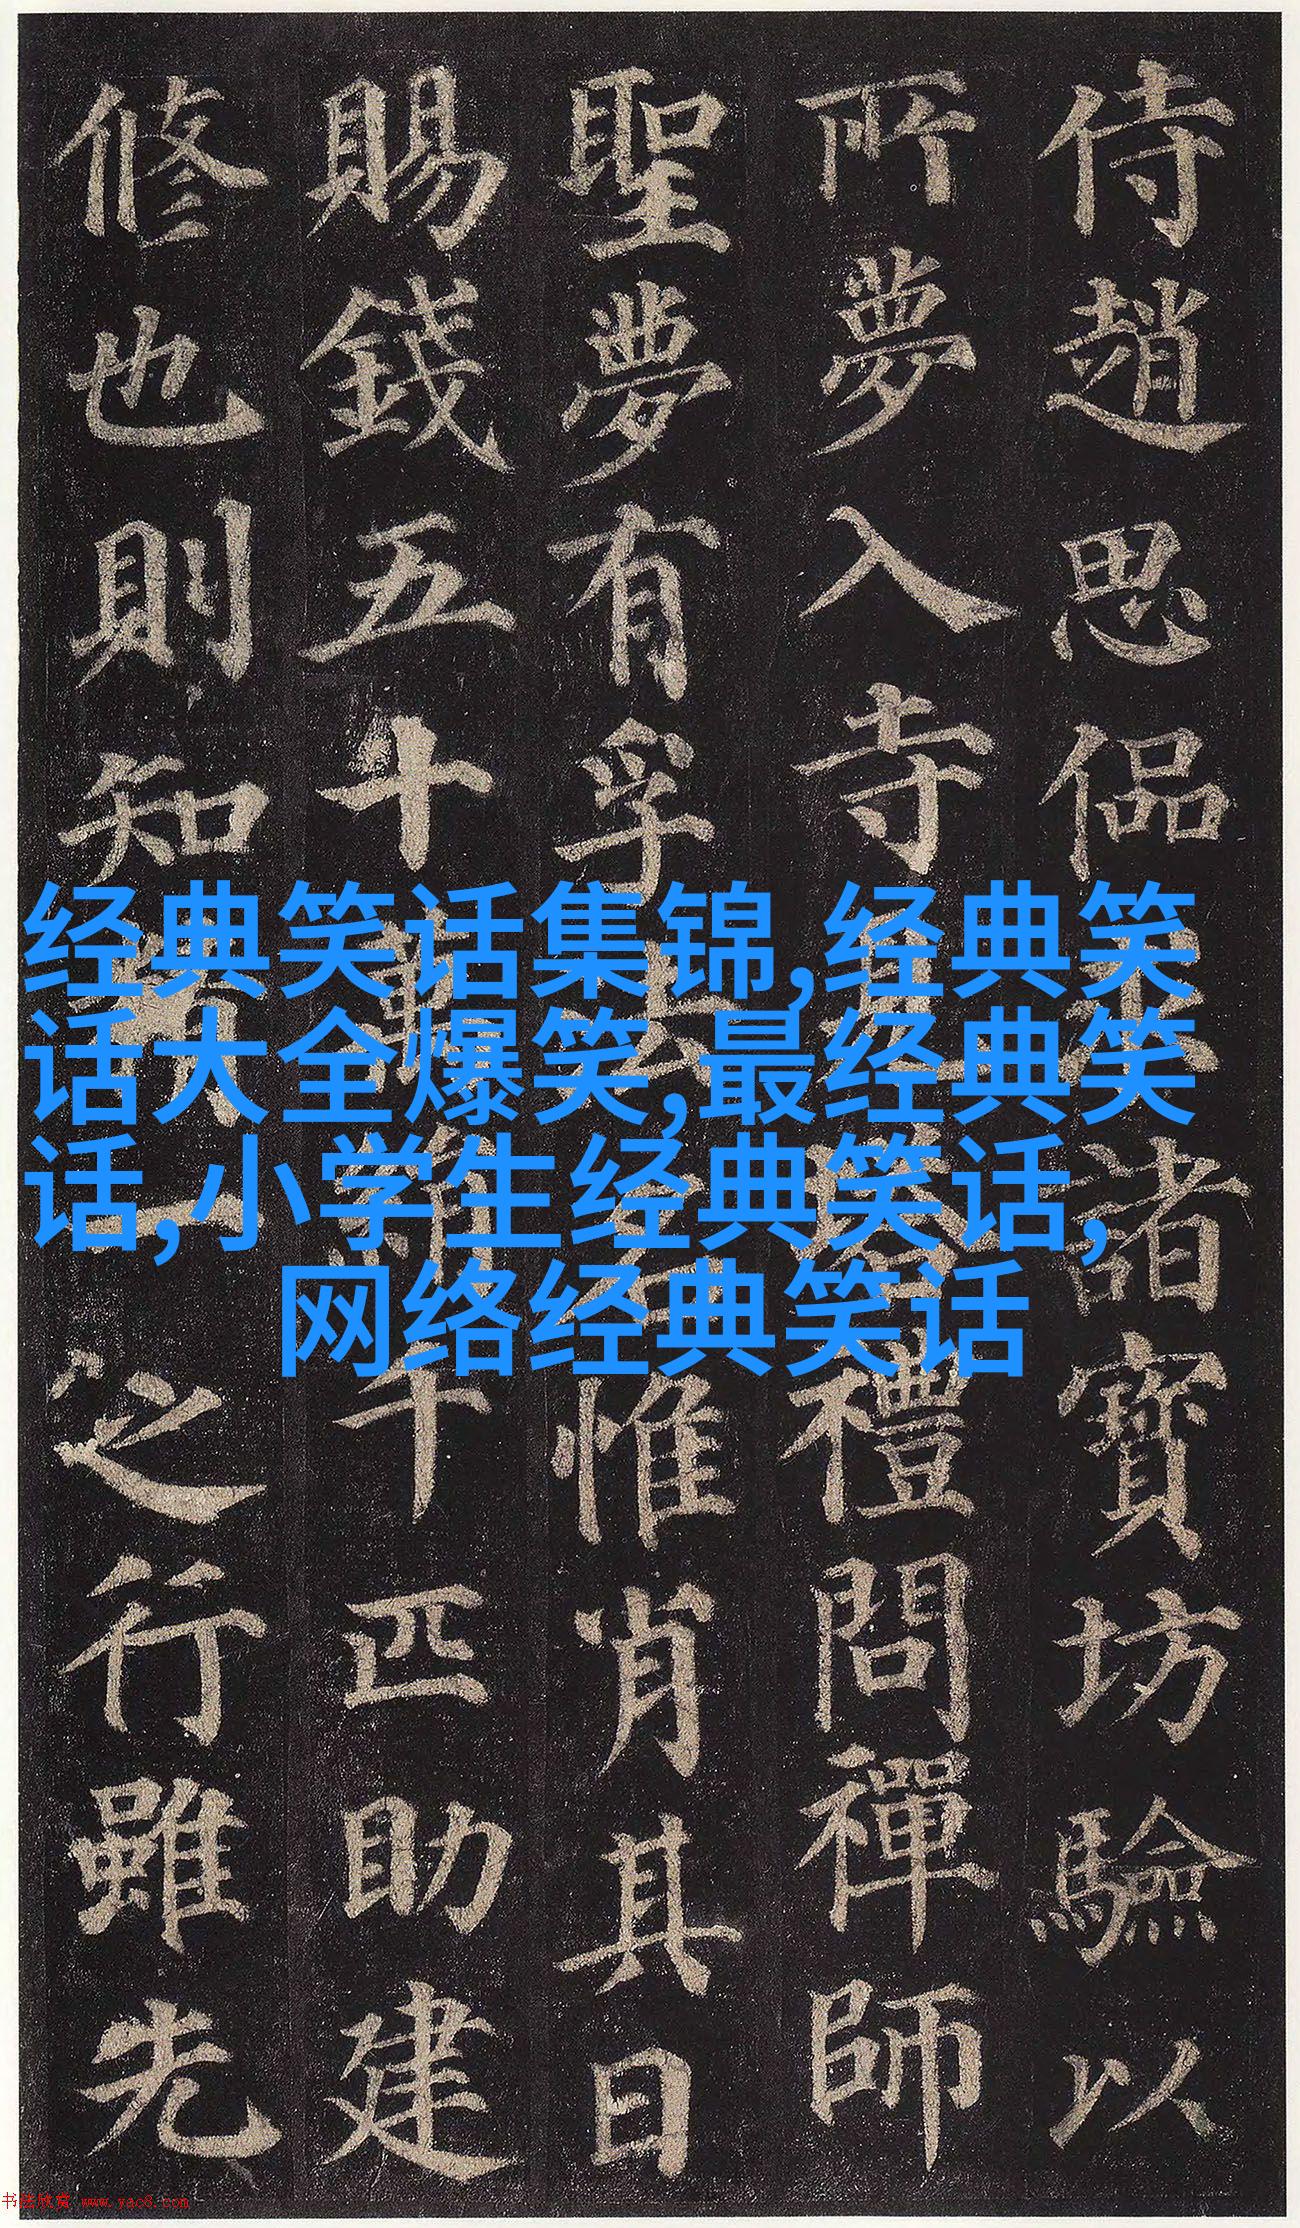 侍趙思偘求諸寶坊驗以
所夢入寺見塔禮問禪師
聖夢有孚法名惟肖其日
賜錢五十萬絹千匹助建
修也則知精一之行雖先
经典笑话集锦,经典笑
话大全爆笑,最经典笑
话,小学生经典笑话,
网络经典笑话
书法欣赏 www.yac8.com